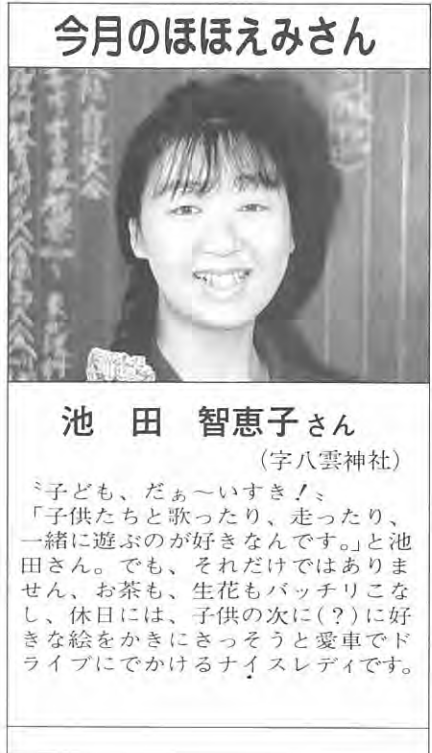 今月のほほえみさん
池田 智恵子さん
(字八雲神社)
〝子ども、だぁ〜いすき！〟
「子供たちと歌ったり、走ったり、
一緒に遊ぶのが好きなんです。」と池
田さん。でも、それだけではありま
せん、お茶も、生花もバッチリこな
し、休日には、子供の次に(？)に好
きな絵をかきにさっそうと愛車でド
ライブにでかけるナイスレディです。